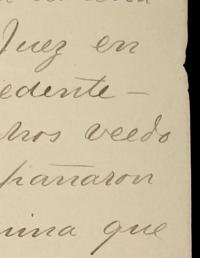 Juez en
edente —
hos veedo
pañaron
nina que